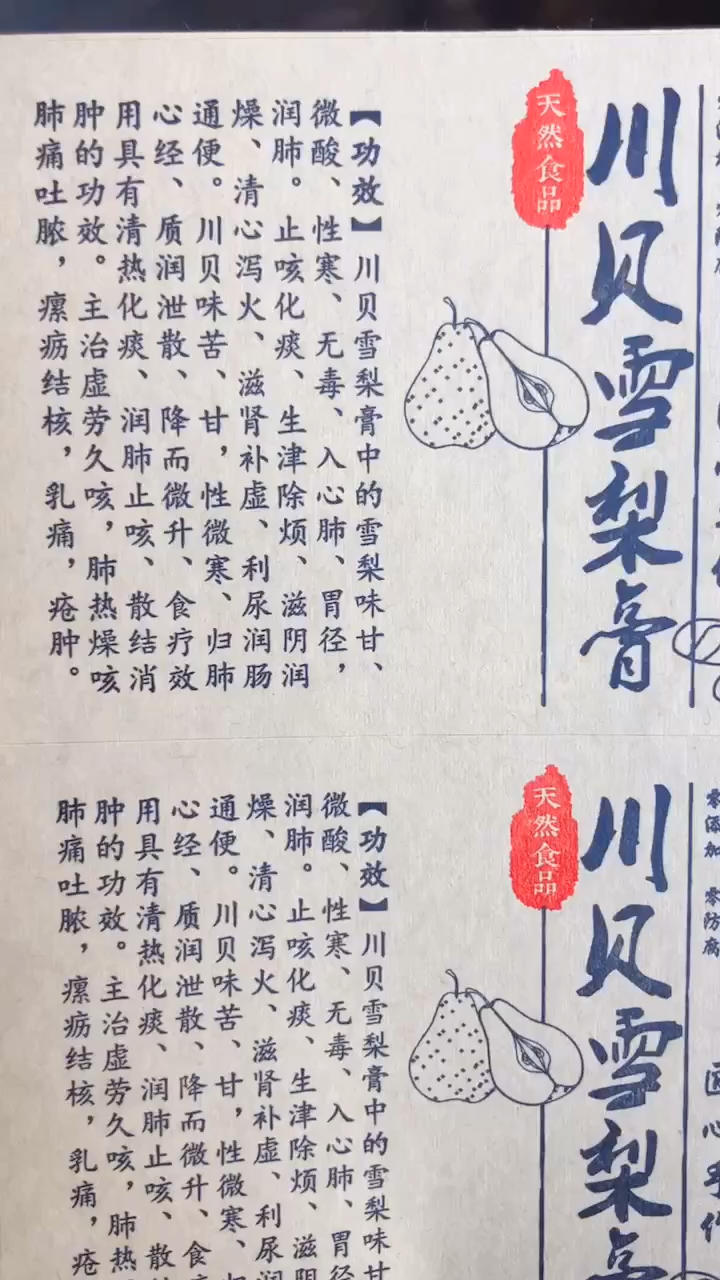 川贝雪梨膏
天然食品
【功效】川贝雪梨膏中的雪梨味甘、
微酸、性寒、无毒、入心肺、胃径，
润肺。止咳化痰、生津除烦、滋阴润
燥、清心泻火、滋肾补虚、利尿润肠
通便。川贝味苦、甘，性微寒、归肺
心经、质润泄散、降而微升、食疗效
用具有清热化痰、润肺止咳、散结消
肿的功效。主治虚劳久咳，肺热燥咳
肺痛吐脓，瘰疬结核，乳痛，疮肿。
零添加 零防腐
匠心手作
川贝雪梨膏
天然食品
【功效】川贝雪梨膏中的雪梨味甘
微酸、性寒、无毒、入心肺、胃径
润肺。止咳化痰、生津除烦、滋阴
燥、清心泻火、滋肾补虚、利尿润
通便。川贝味苦、甘，性微寒、归
心经、质润泄散、降而微升、食疗
用具有清热化痰、润肺止咳、散结
肿的功效。主治虚劳久咳，肺热
肺痛吐脓，瘰疬结核，乳痛，疮